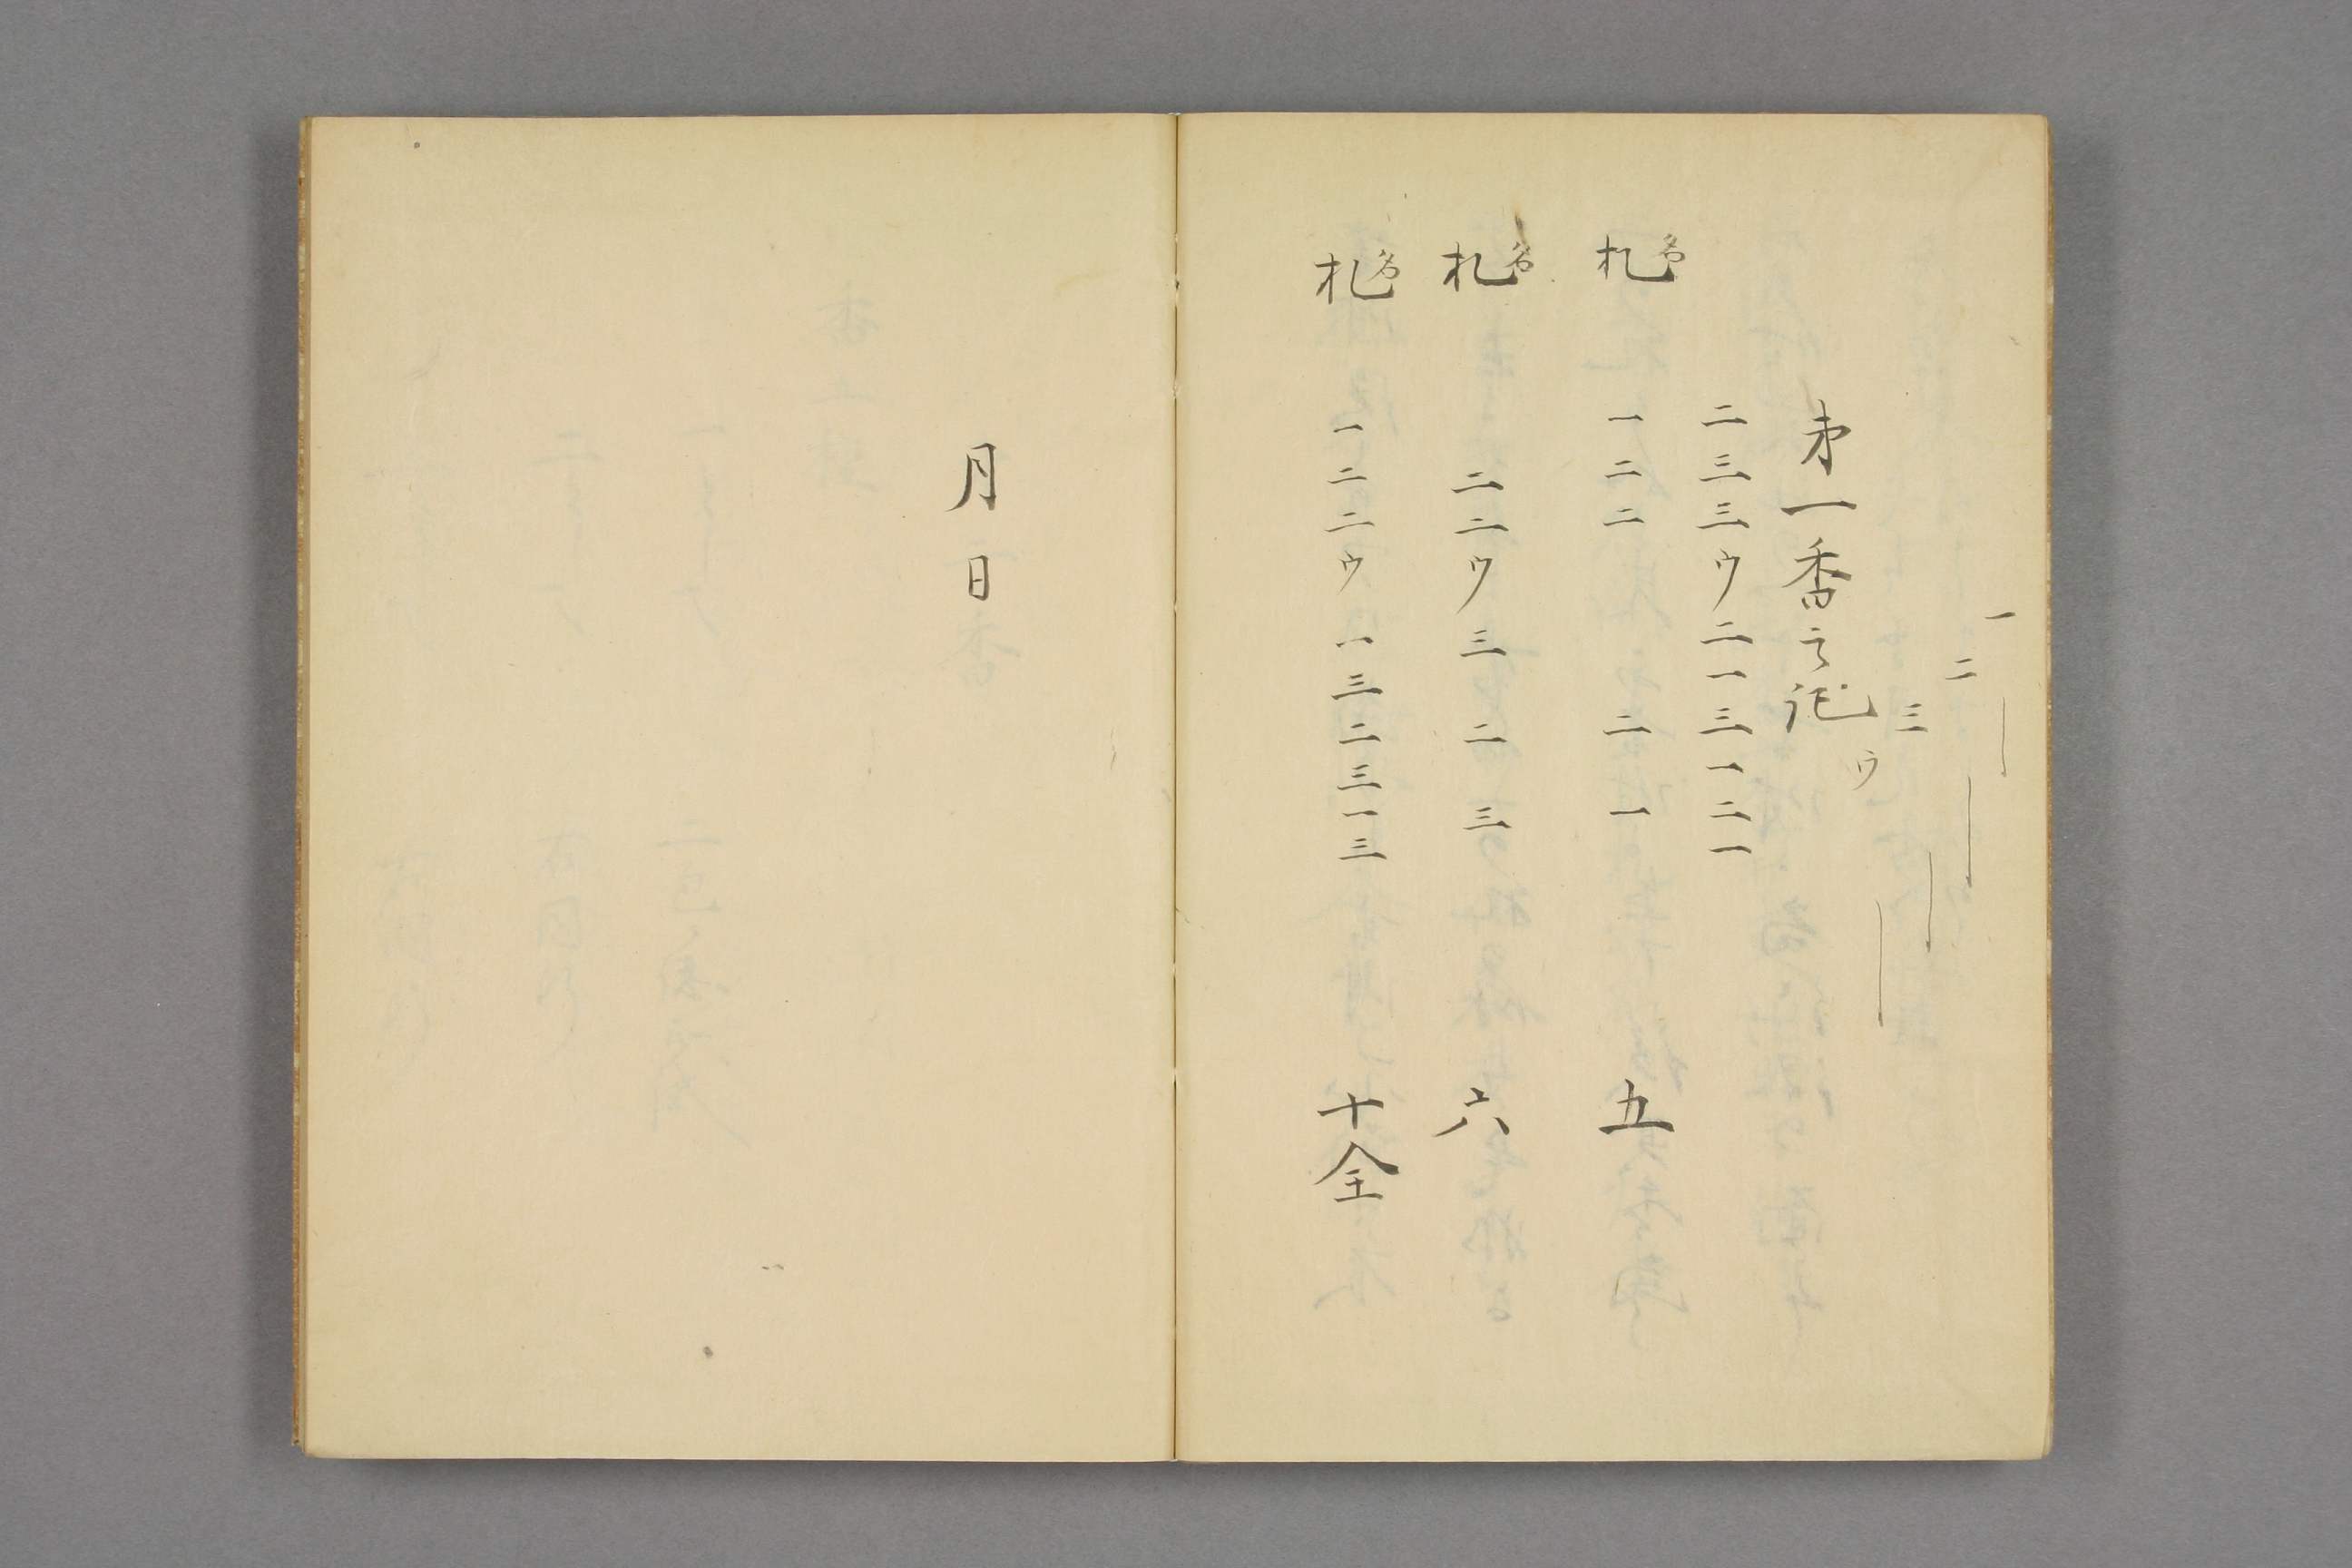 一
二
三
ウ
第一香之記
二三三ウ二一三一二一
札名 一二二 二 一 五
札名 二二ウ三 二 三 六
札名 一二二ウ一三二三一三 十全
月日